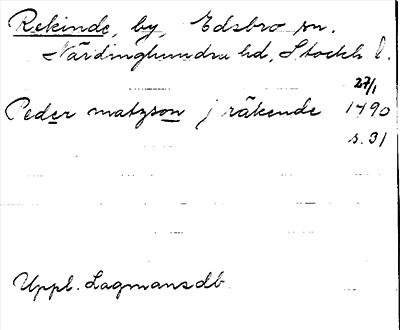 Rekinde, by, Edsbro sn.
Närdinghundra hd, Stockh l.
27/1
Peder matzson j räkende 1490
s. 31
Uppl. Lagmansdb